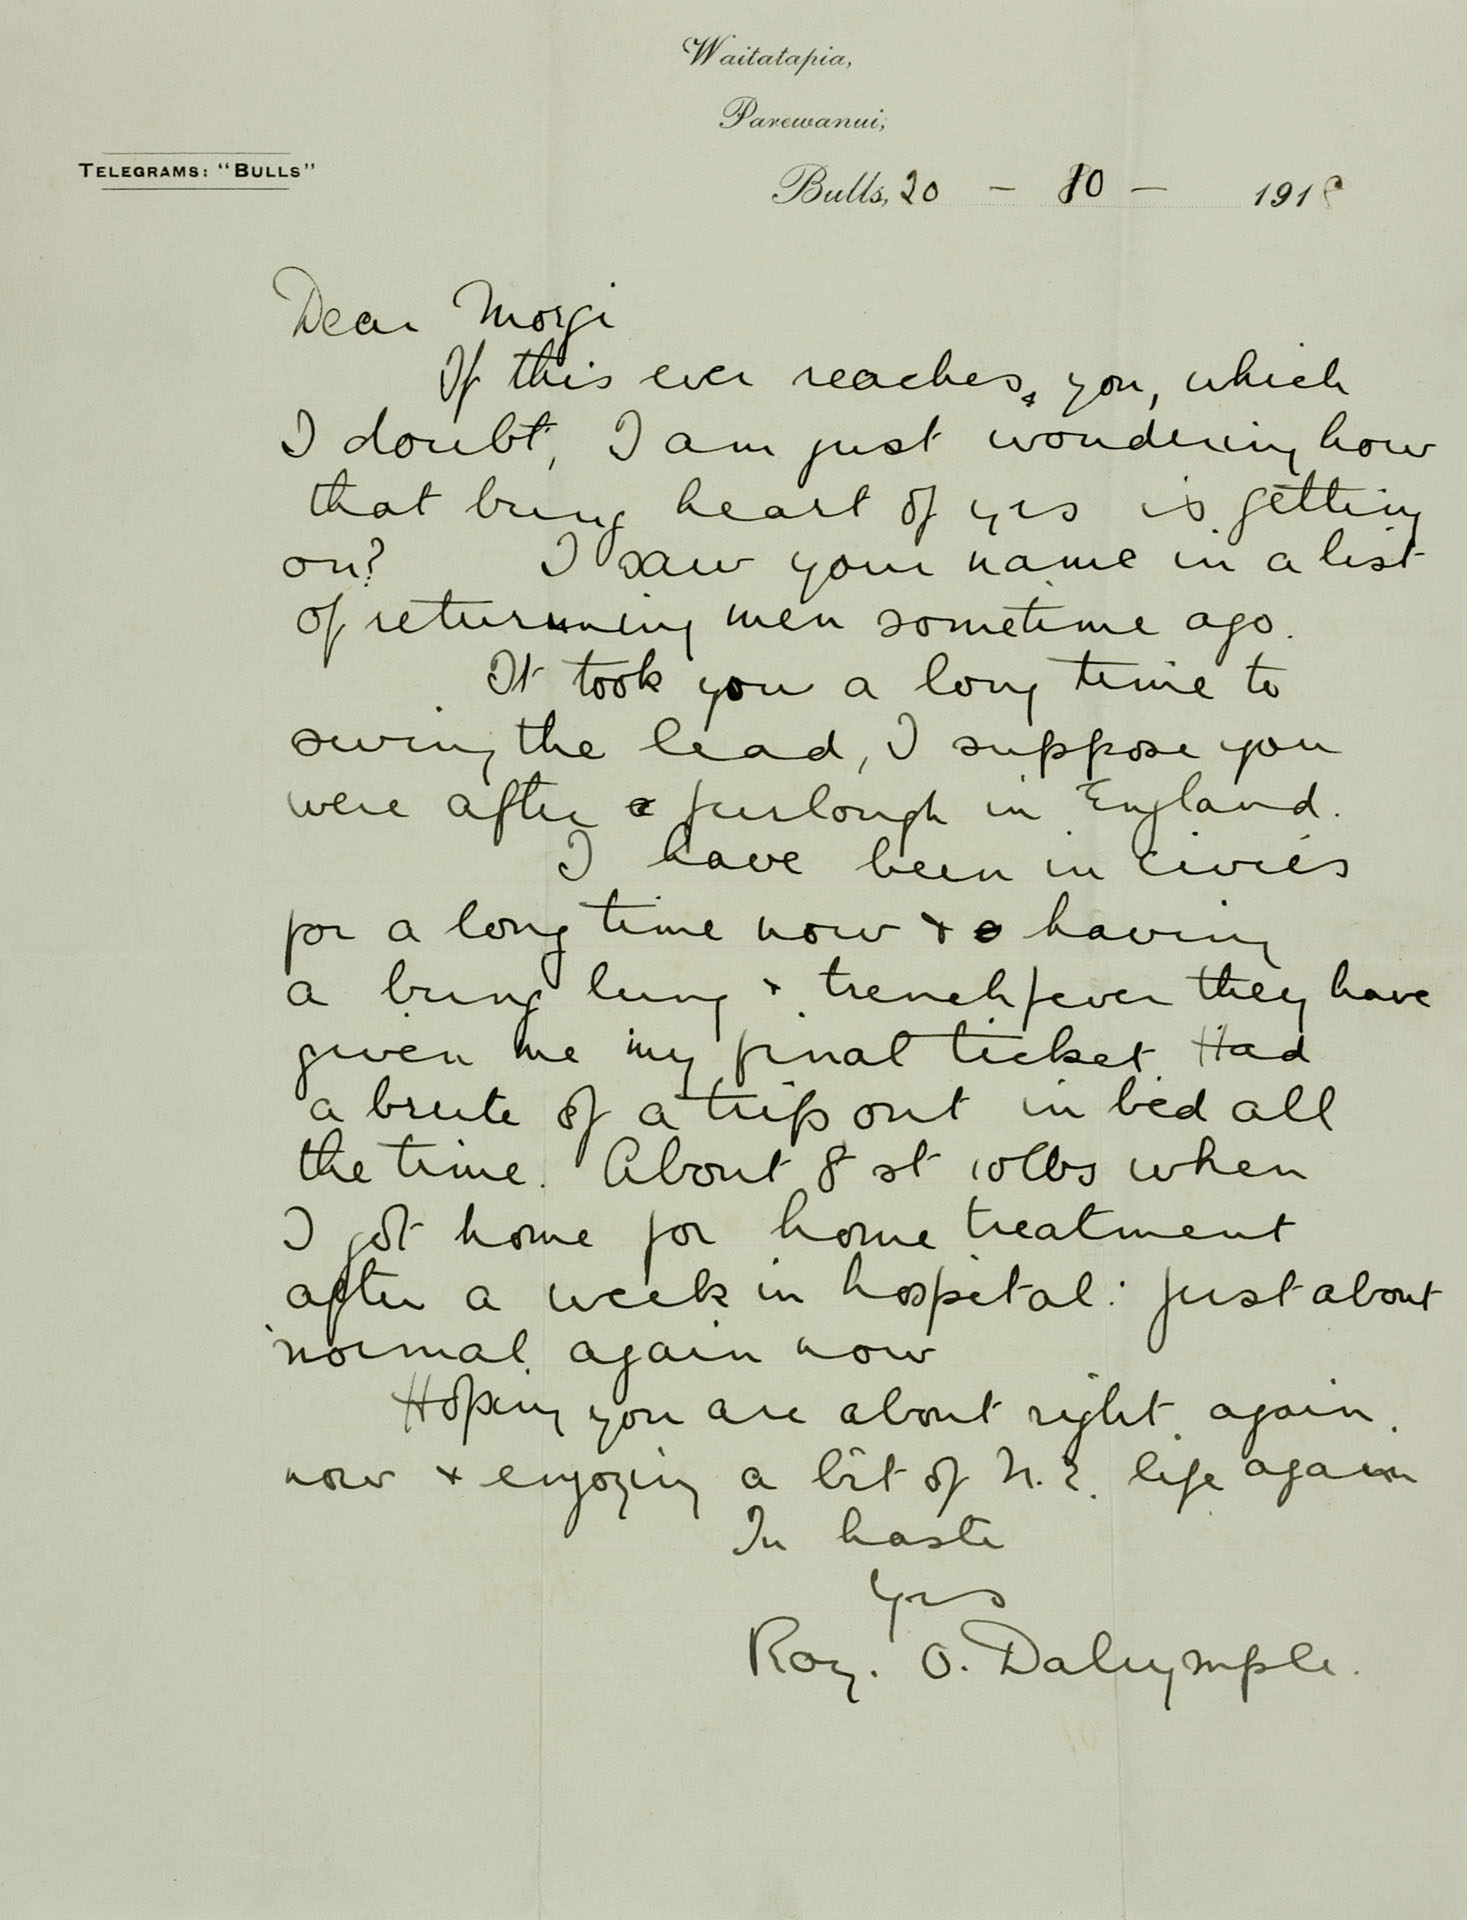 Waitatapia,
Parewanui,
TELEGRAMS: "BULLS"
Bulls, 20 - 10 - 1918
Dear Morgi
If this ever reaches you, which
I doubt, I am just wondering how
that bung heart of yrs is getting
on? I saw your name in a list
of returning men sometime ago.
It took you a long time to
swing the lead, I suppose you
were after a furlough in England.
I have been in civies
for a long time now & having
a bung lung & trench fever they have
given me my final ticket. Had
a brute of a trip out in bed all
the time. About 8 st 10lbs when
I got home for home treatment
after a week in hospital: just about
normal again now
Hoping you are about right again
now & enjoying a bit of N.Z. life again
In haste
Yrs
Roy. O. Dalrymple.